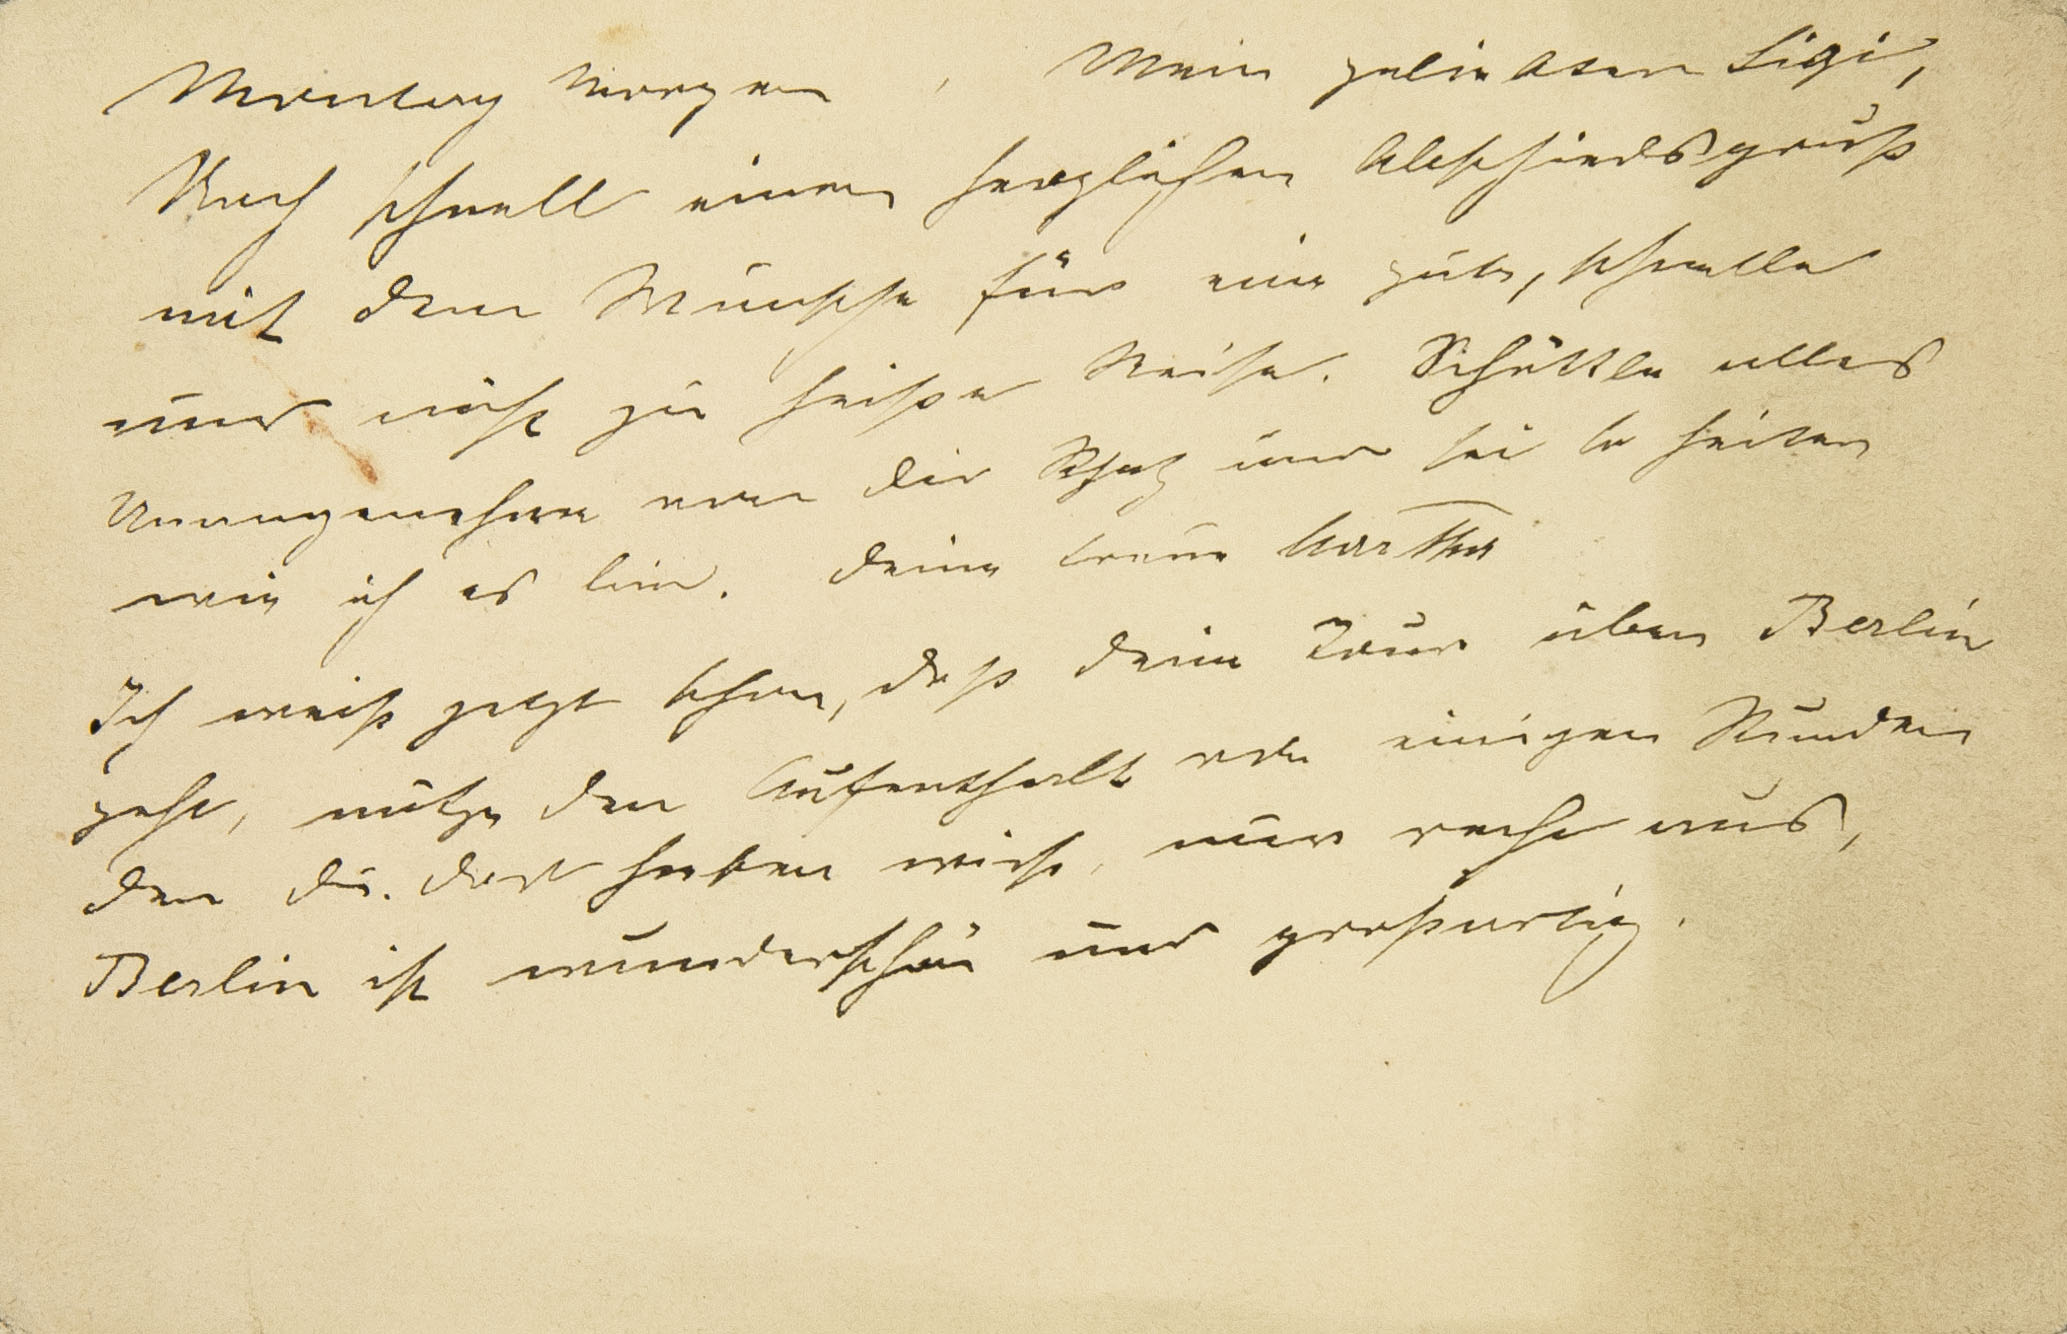 Montag Morgen, Mein geliebter Sigi,
Noch schnell einen herzlichen Abschiedsgruß
mit dem Wunsche für eine gute, schnelle
und nicht zu heiße Reise. Schüttle alles
Unangenehme von dir Schatz und sei so heiter
wie ich es bin. Deine treue Martha
Ich weiß jetzt schon, daß deine Tour über Berlin
geht, nütze den Aufenthalt von einigen Stunden
den du dort haben wirst, nur recht aus,
Berlin ist wunderschön und großartig.